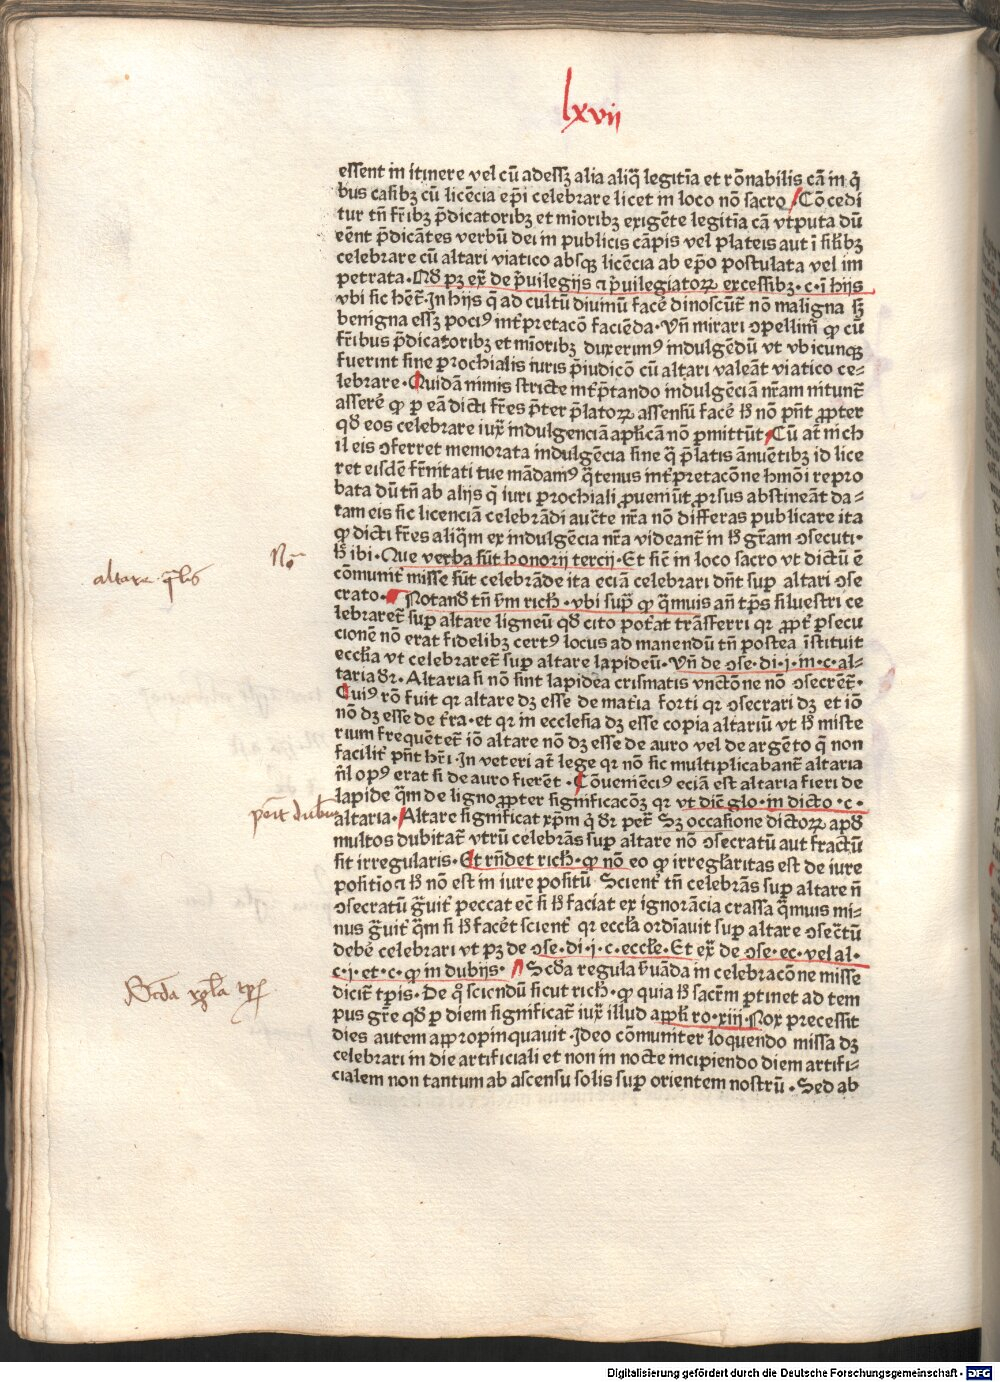 lxvii
essent in itinere vel cū adessꝫ alia aliq̄ legitīa et rōnabilis cā in q̇
bus casibꝫ cū licēcia ep̄i celebrare licet in loco nō sacro Cōcedi
tur tn̄ fr̄ibꝫ p̄dicatoribꝫ et mīoribꝫ exigēte legitīa cā vtputa dū
eēnt p̄dicātes verbū dei in publicis cāpis vel plateis aut ī silībꝫ
celebrare cū altari viatico absqꝫ licēcia ab ep̄o postulata vel im
petrata · Nō pꝫ ex̄ de p̄uilegijs ⁊ p̄uilegiatoꝝ excessibꝫ · c · ī hijs
vbi sic hēt̄ · In hijs q̄ ad cultū diuinū facē dinoscūt̄ nō maligna sꝫ
benigna essꝫ poci⁹ int̄pretacō faciēda · Vn̄ mirari ꝯpellim̄ ꝙ cū
fr̄ibus p̄dicatoribꝫ et mīoribꝫ duxerim⁹ indulgēdū vt vbicunqꝫ
fuerint sine ꝑrochialis iuris p̄iudicō cū altari valeāt viatico ce-
lebrare · Quidā nimis stricte int̄p̄tando indulgēciā nr̄am nitunt̄
asserē ꝙ ꝑ eā dicti fr̄es p̄ter p̄latoꝝ assensū facē hͦ nō pn̄t ꝓpter
qd̄ eos celebrare iux̄ indulgenciā aplīcā nō ꝑmittūt Cū at̄ nich
il eis ꝯferret memorata indulgēcia sine q̄ p̄latis ānuētibꝫ id lice
ret eisdē fr̄nitati tue mādam⁹ q̄tenus int̄pretacōne hm̄oi repro
bata dū tn̄ ab alijs q̄ iuri ꝑrochiali ꝓueniūt ꝓrsus abstineāt da-
tam eis sic licenciā celebrādi auct̄e nr̄a nō differas publicare ita
ꝙ dicti fr̄es aliq̄m ex indulgēcia nr̄a videant̄ in hͦ gr̄am ꝯsecuti ·
hͦ ibi · Que verba sūt honorij tercij · Et sic̄ in loco sacro vt dictū ē
cōmunit̄ misse sūt celebrāde ita eciā celebrari dn̄t suꝑ altari ꝯse
crato · Notand̄ tn̄ sm̄ rich · vbi sup̄ ꝙ q̄muis an̄ tp̄s siluestri ce
lebraret̄ suꝑ altare ligneū qd̄ cito pot̄at trāsferri qr ꝓpt̄ ꝑsecu
cionē nō erat fidelibꝫ cert⁹ locus ad manendū tn̄ postea īstituit
eccl̄ia vt celebraret̄ suꝑ altare lapideū · Vn̄ de ꝯse · di · i · in · c · al-
taria dr̄ · Altaria si nō sint lapidea crismatis vnctōne nō ꝯsecrēt̄ ·
Cui⁹ rō fuit qr altare dꝫ esse de mat̄ia forti qr ꝯsecrari dꝫ et iō
nō dꝫ esse de t̄ra · et qr in ecclesia dꝫ esse copia altariū vt hͦ miste
rium frequētet̄ iō altare nō dꝫ esse de auro vel de argēto q̄ non
facilit̄ pn̄t hr̄i · In veteri at̄ lege qr nō sic multiplicabant̄ altaria
nīl op⁹ erat si de auro fierēt · Cōueniēci⁹ eciā est altaria fieri de
lapide q̄m de ligno ꝓpter significacōꝫ qr vt dic̄ glo · in dicto · c ·
altaria · Altare significat xp̄m q̄ dr̄ pet̄ · Sꝫ occasione dictoꝝ apd̄
multos dubitat̄ vtrū celebrās suꝑ altare nō ꝯsecratū aut fractū
sit irregularis · Et rn̄det rich · ꝙ nō eo ꝙ irregl̄aritas est de iure
positio ⁊ hͦ nō est in iure positū Scient̄ tn̄ celebrās suꝑ altare n̄
ꝯsecratū g̈uit̄ peccat ec̄ si hͦ faciat ex ignorācia crassa q̄muis mi-
nus g̈uit̄ q̄m si hͦ facēt scient̄ qr eccl̄ia ordīauit suꝑ altare ꝯsecr̄tū
debē celebrari vt pꝫ de ꝯse · di · i · c · eccl̄e · Et ex̄ de ꝯse · ec · vel al ·
c · i · et · c · ꝙ in dubijs · Scd̄a regula ẜuāda in celebracōne misse
dicit̄ tp̄is · De qͦ sciendū sicut rich · ꝙ quia hͦ sacr̄m ꝑtinet ad tem
pus gr̄e qd̄ ꝑ diem significat̄ iux̄ illud apl̄i ro · xiii · Nox precessit
dies autem appropinquauit · Ideo cōmuniter loquendo missa dꝫ
celebrari in die artificiali et non in nocte incipiendo diem artifi-
cialem non tantum ab ascensu solis suꝑ orientem nostrū · Sed ab
No
altare q̄lis
Scd̄a regl̄a tp̄is
Digitalisierung gefördert durch die Deutsche Forschungsgemeinschaft - DFG